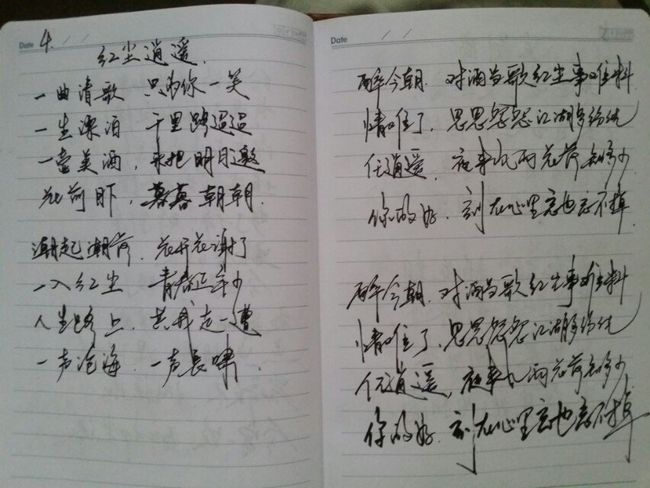 Date 4. / /
红尘逍遥.
一曲清歌 只为你一笑
一生潇洒 千里路迢迢
一壶美酒, 来把明月邀
花前月下, 暮暮朝朝.
潮起潮落 花开花谢了
一入红尘 青春正年少
人生路上, 共我走一遭
一声沧海, 一声长啸.
Date / /
醉今朝. 对酒当歌红尘事难料
情难了, 恩恩怨怨江湖多纷扰
任逍遥, 夜来风雨花落知多少
你的好, 刻在心里忘也忘不掉
醉今朝. 对酒当歌红尘事难料
情难了, 恩恩怨怨江湖多纷扰
任逍遥, 夜来风雨花落知多少
你的好. 刻在心里忘也忘不掉